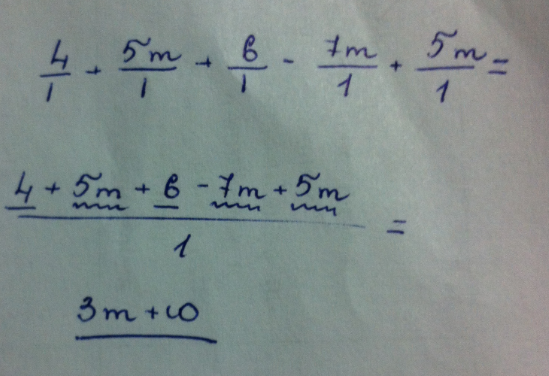 4/1 + 5m/1 + 6/1 - 7m/1 + 5m/1 =
4 + 5m + 6 - 7m + 5m
=
1
3m + 10